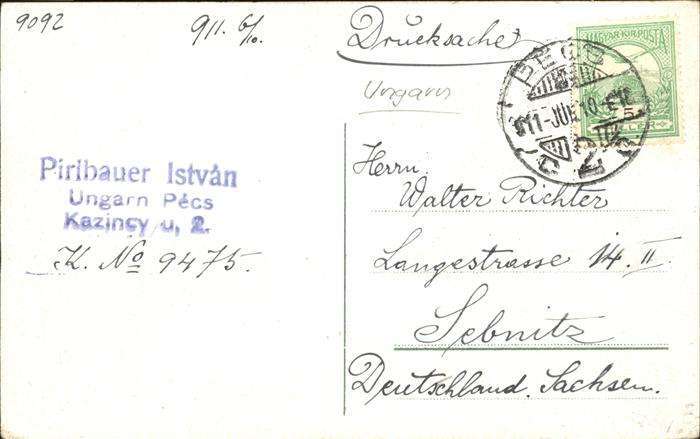 9092
911. 6/10.
Drucksache
Ungarn
MAGYAR KIR. POSTA
PÉCS
911-JUN 10
2
5
Pirlbauer István
Ungarn Pécs
Kazinczy u, 2.
K. No 9475.
Herrn
Walter Richter
Langestrasse 14. II
Sebnitz
Deutschland. Sachsen.